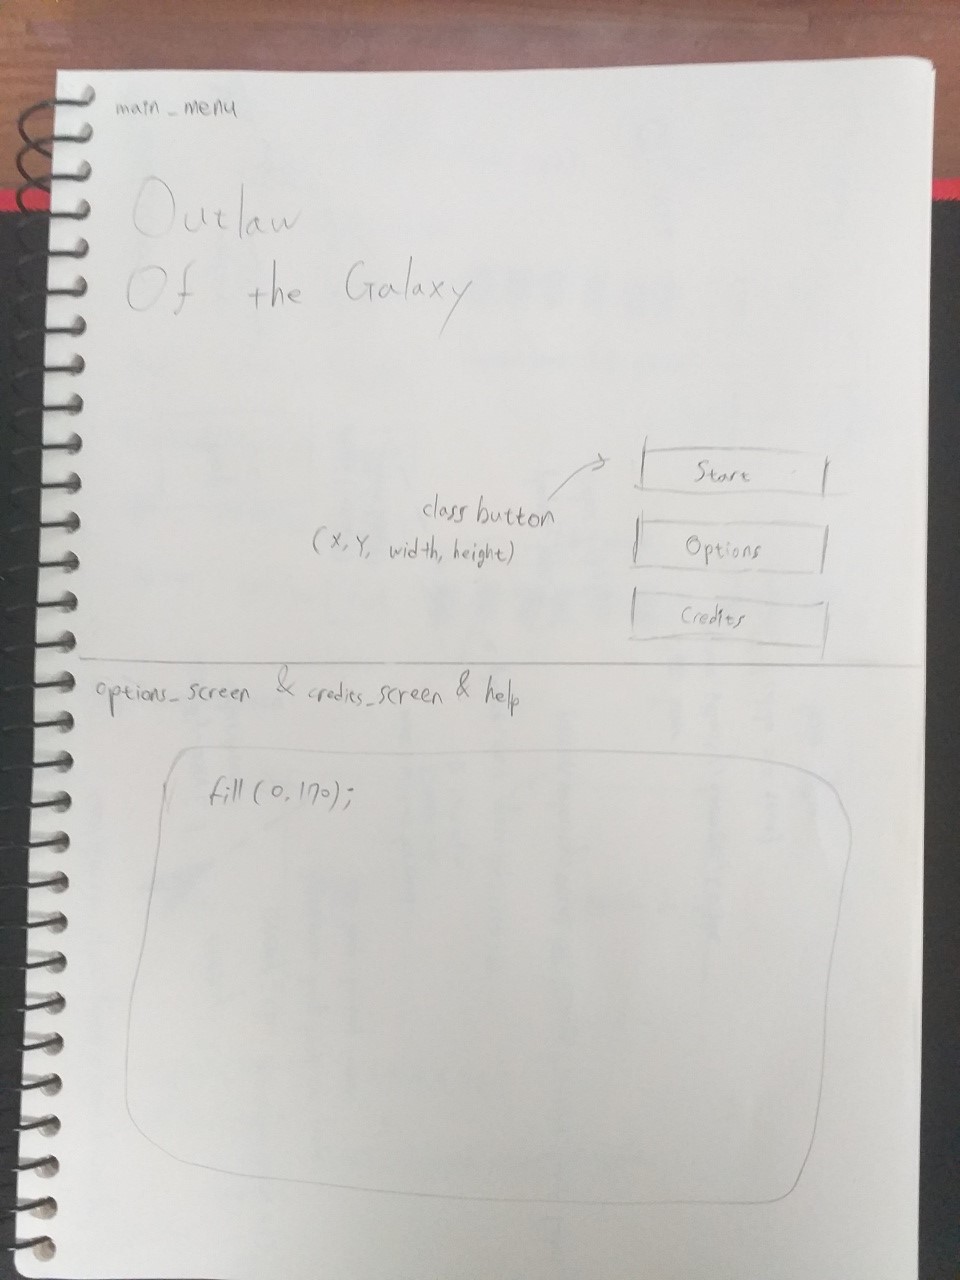 main_menu
Outlaw
Of the Galaxy
Start
class button
(X, Y, width, height)
Options
Credits
options_screen & credits_screen & help
fill (0, 170);